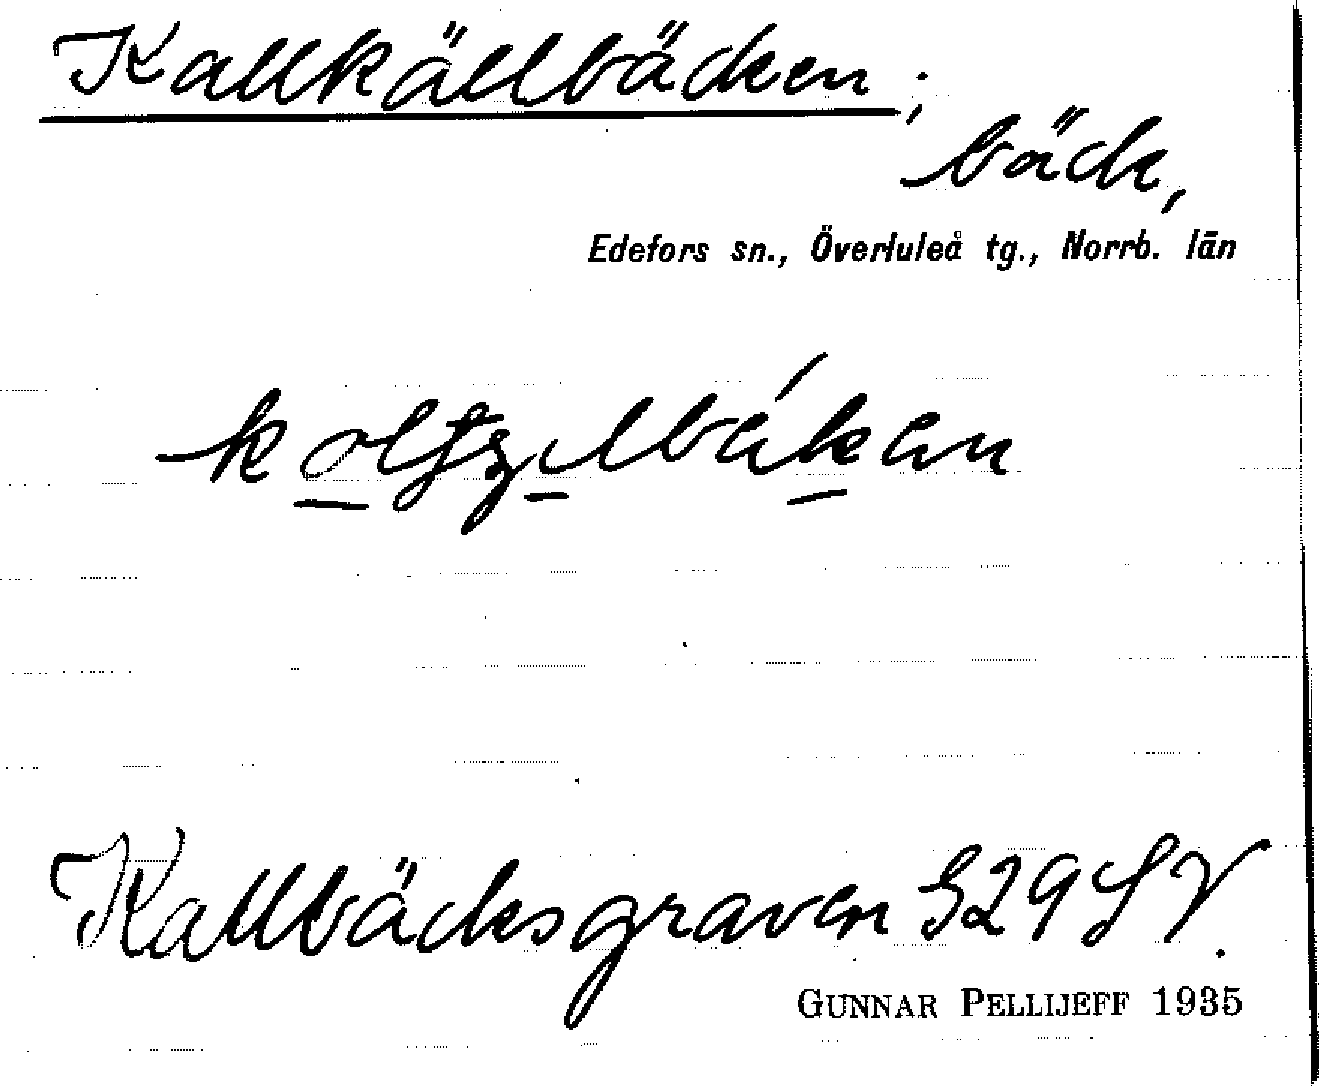 Kallkällbäcken;
bäck,
Edefors sn., Överluleå tg., Norrb. län
Kallbäcksgraven S29SV.
GUNNAR PELLIJEFF 1935